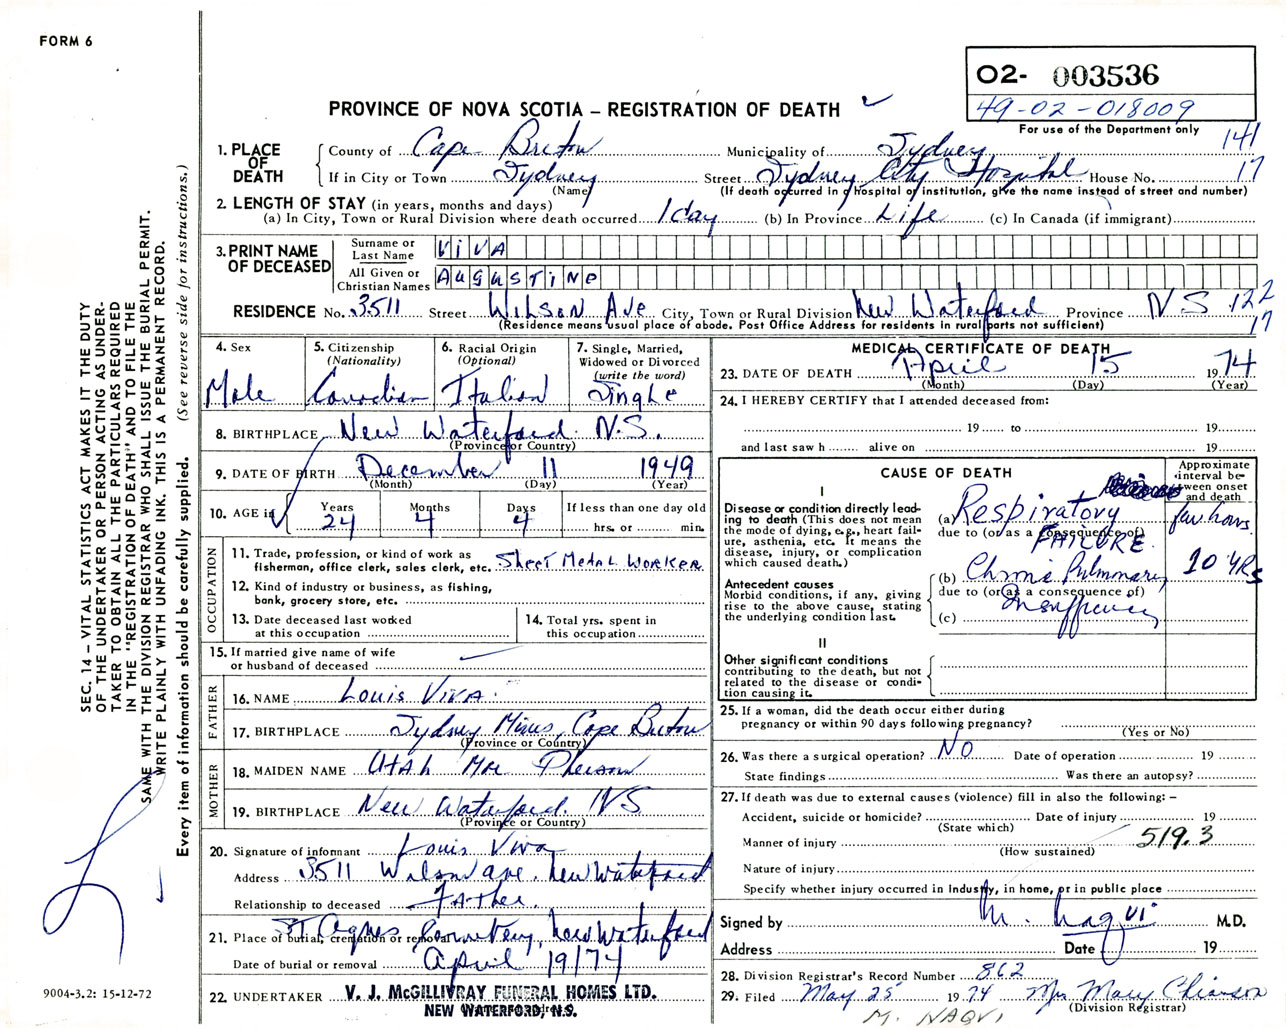 FORM 6
O2- 003536
49-02-018009
PROVINCE OF NOVA SCOTIA – REGISTRATION OF DEATH
For use of the Department only
1. PLACE OF DEATH
County of Cape Breton Municipality of Sydney 141
If in City or Town Sydney Street Sydney City Hospital House No. 17
(Name) (If death occurred in a hospital of institution, give the name instead of street and number)
2. LENGTH OF STAY (in years, months and days)
(a) In City, Town or Rural Division where death occurred 1 day (b) In Province Life (c) In Canada (if immigrant)
3. PRINT NAME OF DECEASED
Surname or Last Name VIVA
All Given or Christian Names AUGUSTINE
RESIDENCE No. 3511 Street Wilson Ave City, Town or Rural Division New Waterford Province N S 122
(Residence means usual place of abode. Post Office Address for residents in rural parts not sufficient) 17
4. Sex
Male
5. Citizenship
(Nationality)
Canadian
6. Racial Origin
(Optional)
Italian
7. Single, Married,
Widowed or Divorced
(write the word)
Single
8. BIRTHPLACE New Waterford N.S.
(Province or Country)
9. DATE OF BIRTH December 11 1949
(Month) (Day) (Year)
10. AGE if
Years Months Days If less than one day old
24 4 4 hrs. or min.
OCCUPATION
11. Trade, profession, or kind of work as
fisherman, office clerk, sales clerk, etc. Sheet Metal Worker
12. Kind of industry or business, as fishing,
bank, grocery store, etc.
13. Date deceased last worked
at this occupation
14. Total yrs. spent in
this occupation
15. If married give name of wife
or husband of deceased
FATHER
16. NAME Louis Viva
17. BIRTHPLACE Sydney Mines, Cape Breton
(Province or Country)
MOTHER
18. MAIDEN NAME Utah Mac Pherson
19. BIRTHPLACE New Waterford. NS
(Province or Country)
20. Signature of informant Louis Viva
Address 3511 Wilson Ave. New Waterford
Relationship to deceased Father.
21. Place of burial, cremation or removal St Agnes Cemetery, New Waterford
Date of burial or removal April 19/74
22. UNDERTAKER V. J. McGILLIVRAY FUNERAL HOMES LTD.
NEW WATERFORD, N.S.
MEDICAL CERTIFICATE OF DEATH
23. DATE OF DEATH April 15 1974
(Month) (Day) (Year)
24. I HEREBY CERTIFY that I attended deceased from:
19 to 19
and last saw h alive on 19
CAUSE OF DEATH
Approximate
interval be-
tween onset
and death
I
Disease or condition directly lead-
ing to death (This does not mean
the mode of dying, e.g., heart fail-
ure, asthenia, etc. It means the
disease, injury, or complication
which caused death.)
(a) Respiratory few hours
due to (or as a consequence of)
FAILURE
Antecedent causes
Morbid conditions, if any, giving
rise to the above cause, stating
the underlying condition last.
(b) Chronic Pulmonary 10 YRS
due to (or as a consequence of)
Insufficiency
(c)
II
Other significant conditions
contributing to the death, but not
related to the disease or condi-
tion causing it.
25. If a woman, did the death occur either during
pregnancy or within 90 days following pregnancy?
(Yes or No)
26. Was there a surgical operation? No Date of operation 19
State findings Was there an autopsy?
27. If death was due to external causes (violence) fill in also the following: –
Accident, suicide or homicide? Date of injury 19
(State which)
Manner of injury 519.3
(How sustained)
Nature of injury
Specify whether injury occurred in Industry, in home, or in public place
Signed by M. Naqvi M.D.
Address Date 19
28. Division Registrar's Record Number 862
29. Filed May 25 1974 Mrs Mary Chiasson
(Division Registrar)
M. NAQVI
SEC. 14 – VITAL STATISTICS ACT MAKES IT THE DUTY
OF THE UNDERTAKER OR PERSON ACTING AS UNDER-
TAKER TO OBTAIN ALL THE PARTICULARS REQUIRED
IN THE "REGISTRATION OF DEATH" AND TO FILE THE
SAME WITH THE DIVISION REGISTRAR WHO SHALL ISSUE THE BURIAL PERMIT.
WRITE PLAINLY WITH UNFADING INK. THIS IS A PERMANENT RECORD.
Every item of information should be carefully supplied. (See reverse side for instructions.)
9004-3.2: 15-12-72